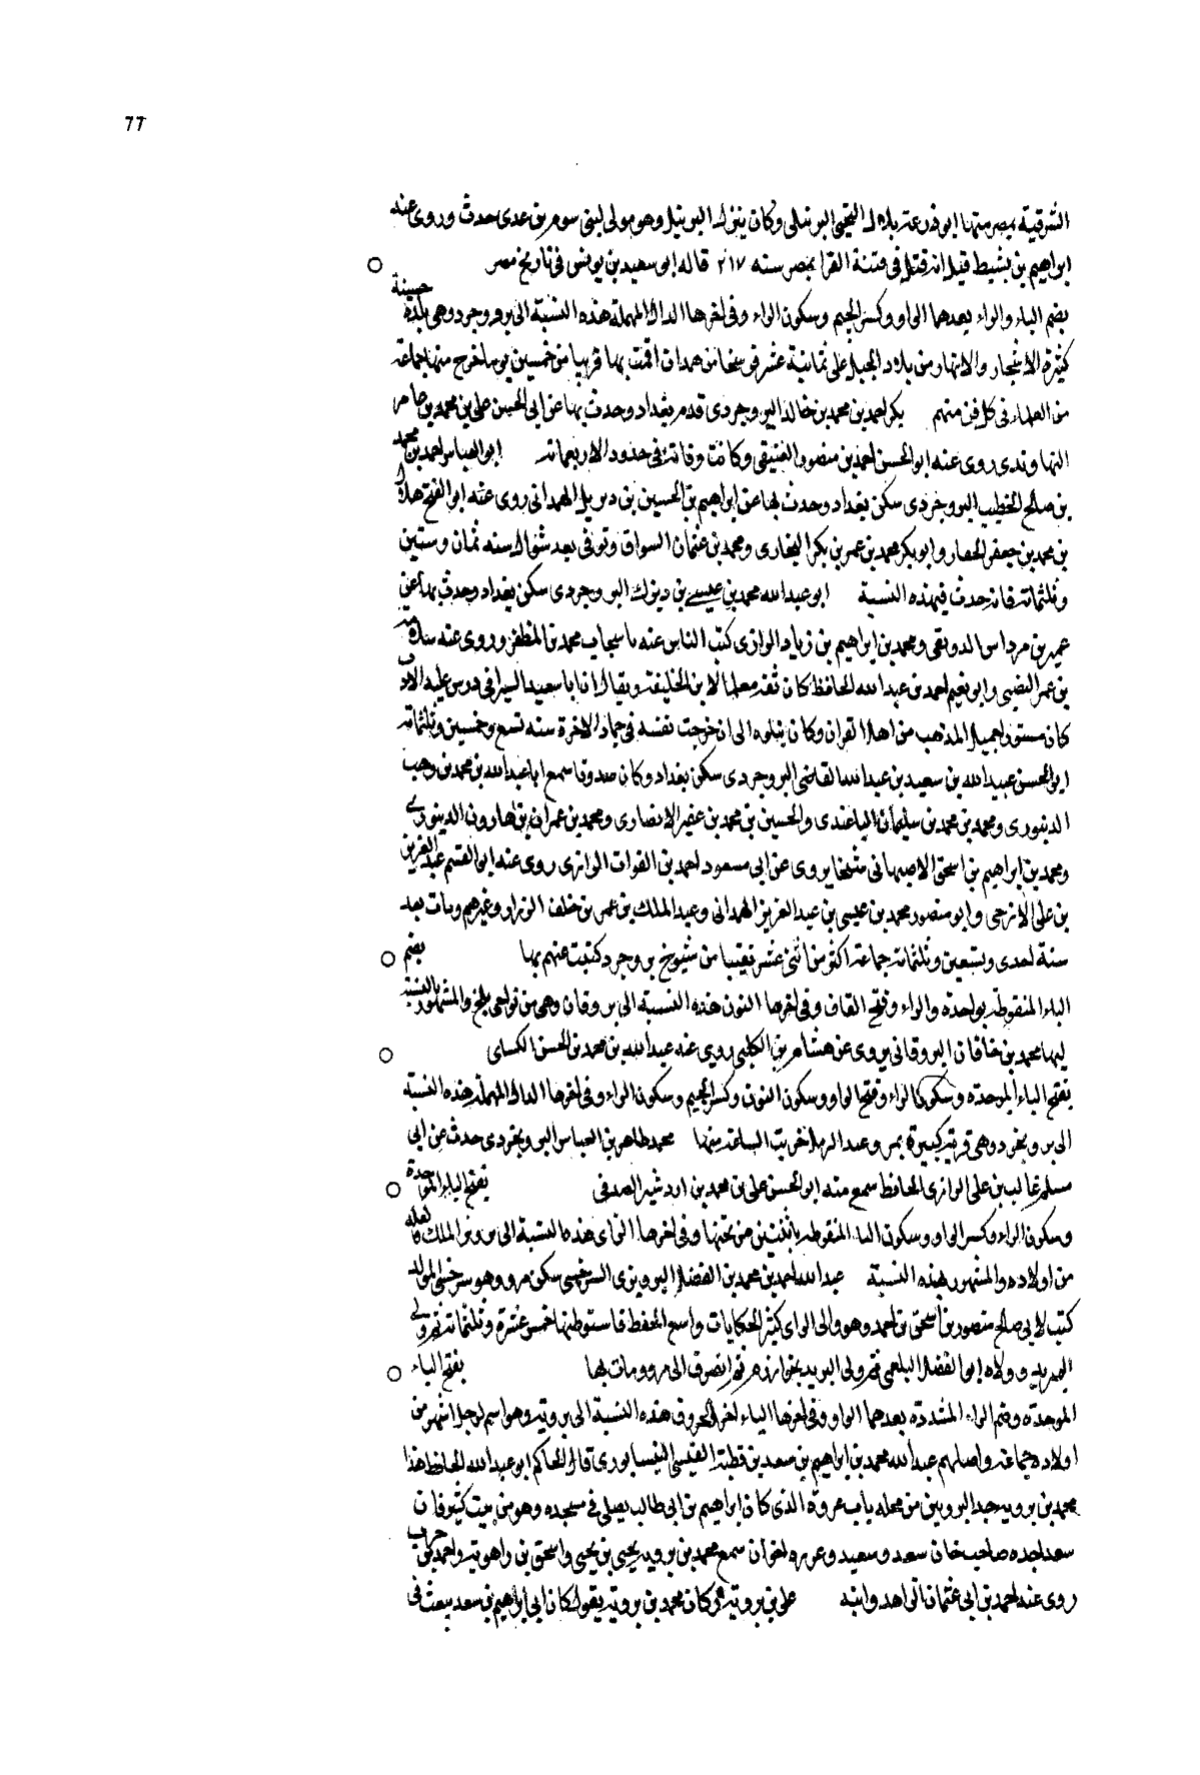 77
الشرقية بمصر منها ابو ذر عمر بلال التجيبى البرنيلى وكان ينزل البرنيل وهو مولى لبنى سوم بن عدى حدث وروى عنه
ابراهيم بن نشيط قيل انه قتل فى فتنة القرا بمصر سنه ٢١٧ قاله ابو سعيد بن يونس فى تاريخ مصر
بضم الباء والراء بعدهما الواو وكسر الجيم وسكون الراء وفى اخرها الدال المهملة هذه النسبة الى بروجرد وهى بلدة حسنة
كثيرة الاشجار والانهار من بلاد الجبل على ثمانية عشر فرسخا من همدان اقمت بها قريبا من خمسين يوما خرج منها جماعة
من العلماء فى كل فن منهم بكر احمد بن محمد بن خالد البروجردى قدم بغداد وحدث بها عن ابى الحسن على بن محمد بن عامر
النهاوندى روى عنه ابو الحسن احمد بن منصور العتيقى وكانت وفاته فى حدود الاربعمائه ابو العباس احمد بن محمد
بن صالح الخطيب البروجردى سكن بغداد وحدث بها عن ابراهيم بن الحسين بن ديزيل الهمدانى روى عنه ابو الفتح هلال
بن محمد بن جعفر الحفار وابو بكر محمد بن عمر بن بكر البخارى ومحمد بن عثمان السواق وتوفى بعد شوال سنه ثمان وستين
وثلثمائة فانه حدث فى هذه النسبة ابو عبد الله محمد بن عيسى بن ديزك البروجردى سكن بغداد وحدث بها عن
عمير بن مرداس الدونقى ومحمد بن ابراهيم بن زياد الرازى كتب الناس عنه بانتخاب محمد بن المظفر وروى عنه سلامة
بن عمر النصيبى وابو نعيم احمد بن عبد الله الحافظ كان ثقة معلما لابن الخليفة ويقال ان ابا سعيد السيرافى درس عليه الادب
كان مستورا جميل المذهب من اهل القران وكان يتلوه الى ان خرجت نفسه فى جماد الاخرة سنه تسع وخمسين وثلثمائة
ابو الحسن عبيد الله بن سعيد بن عبد الله القاضى البروجردى سكن بغداد وكان صدوقا سمع ابا عبد الله بن محمد بن وهب
الدينورى ومحمد بن محمد بن سليمان الباغندى والحسين بن محمد بن عفير الانصارى ومحمد بن عمران بن هارون الدينورى
ومحمد بن ابراهيم بن اسحق الاصبهانى شيخا يروى عن ابى مسعود احمد بن الفرات الرازى روى عنه ابو القسم عبد العزيز
بن على الازجى وابو منصور محمد بن عيسى بن عبد العزيز الهمدانى وعبد الملك بن عمر بن خلف الرزاز وغيرهم ومات بعد
سنة احدى وتسعين وثلثمائة جماعة اكثر من اثنى عشر نفسا من شيوخ بروجرد كتبت عنهم بها بضم
الباء المنقوطة بواحدة والراء وفتح القاف وفى اخرها النون هذه النسبة الى بروقان وهى من نواحى بلخ والمشهور بالنسبة
اليها محمد بن خاقان البروقانى يروى عن هشام بن الكلبى روى عنه عبد الله بن محمد بن الحسن الكساى
بفتح الباء الموحدة وسكون الراء وفتح الواو وسكون النون وكسر الجيم وسكون الراء وفى اخرها الدال المهملة هذه النسبة
الى برونجرد وهى قرية كبيرة بمرو عند الرمل خربت الساعة منها محمد طاهر بن العباس البرونجردى حدث عن ابى
مسلم غالب بن على الرازى الحافظ سمع منه ابو الحسن على بن محمد بن اردشير الصدفى بفتح الباء الموحدة
وسكون الراء وكسر الواو وسكون الياء المنقوطه باثنتين من تحتها وفى اخرها الزاى هذه النسبة الى برويز الملك لعله
من اولاده والمشهور بهذه النسبة عبد الله احمد بن محمد بن الفضل البرويزى السرخسى سكن مرو وهو سرخسى المولد
كتب لابى صالح منصور بن اسحق بن احمد وهو والى الراى كثير الحكايات واسع الحفظ فاستوطنها خمس عشرة وثلثمائة ثم ولى
البريد وولاه ابو الفضل البلعمى ثم ولى البريد بخوارزم ثم انصرف الى مرو ومات بها بفتح الباء
الموحدة وضم الراء المشددة بعدهما الواو وفى اخرها الياء اخر الحروف هذه النسبة الى برويه وهو اسم لرجل اشهر من
اولاده جماعة واصلهم عبد الله محمد بن ابراهيم بن سعد بن قطبة القيسى النيسابورى قال الحاكم ابو عبد الله الحافظ هذا
محمد بن برويه جد البرويين من محله باب عروة الذى كان ابراهيم بن ابى طالب يصلى فى مسجده وهو من بيت كبير وان
سعدا جده صاحب خان سعد وسعيد وعروه اخوان سمع محمد بن برويه يحيى بن يحيى واسحق بن راهويه واحمد بن حرب
روى عنه احمد بن ابى عثمان الزاهد وابنه على بن برويه كان محمد بن برويه يقول كان ابى ابراهيم بن سعد يبعث فى